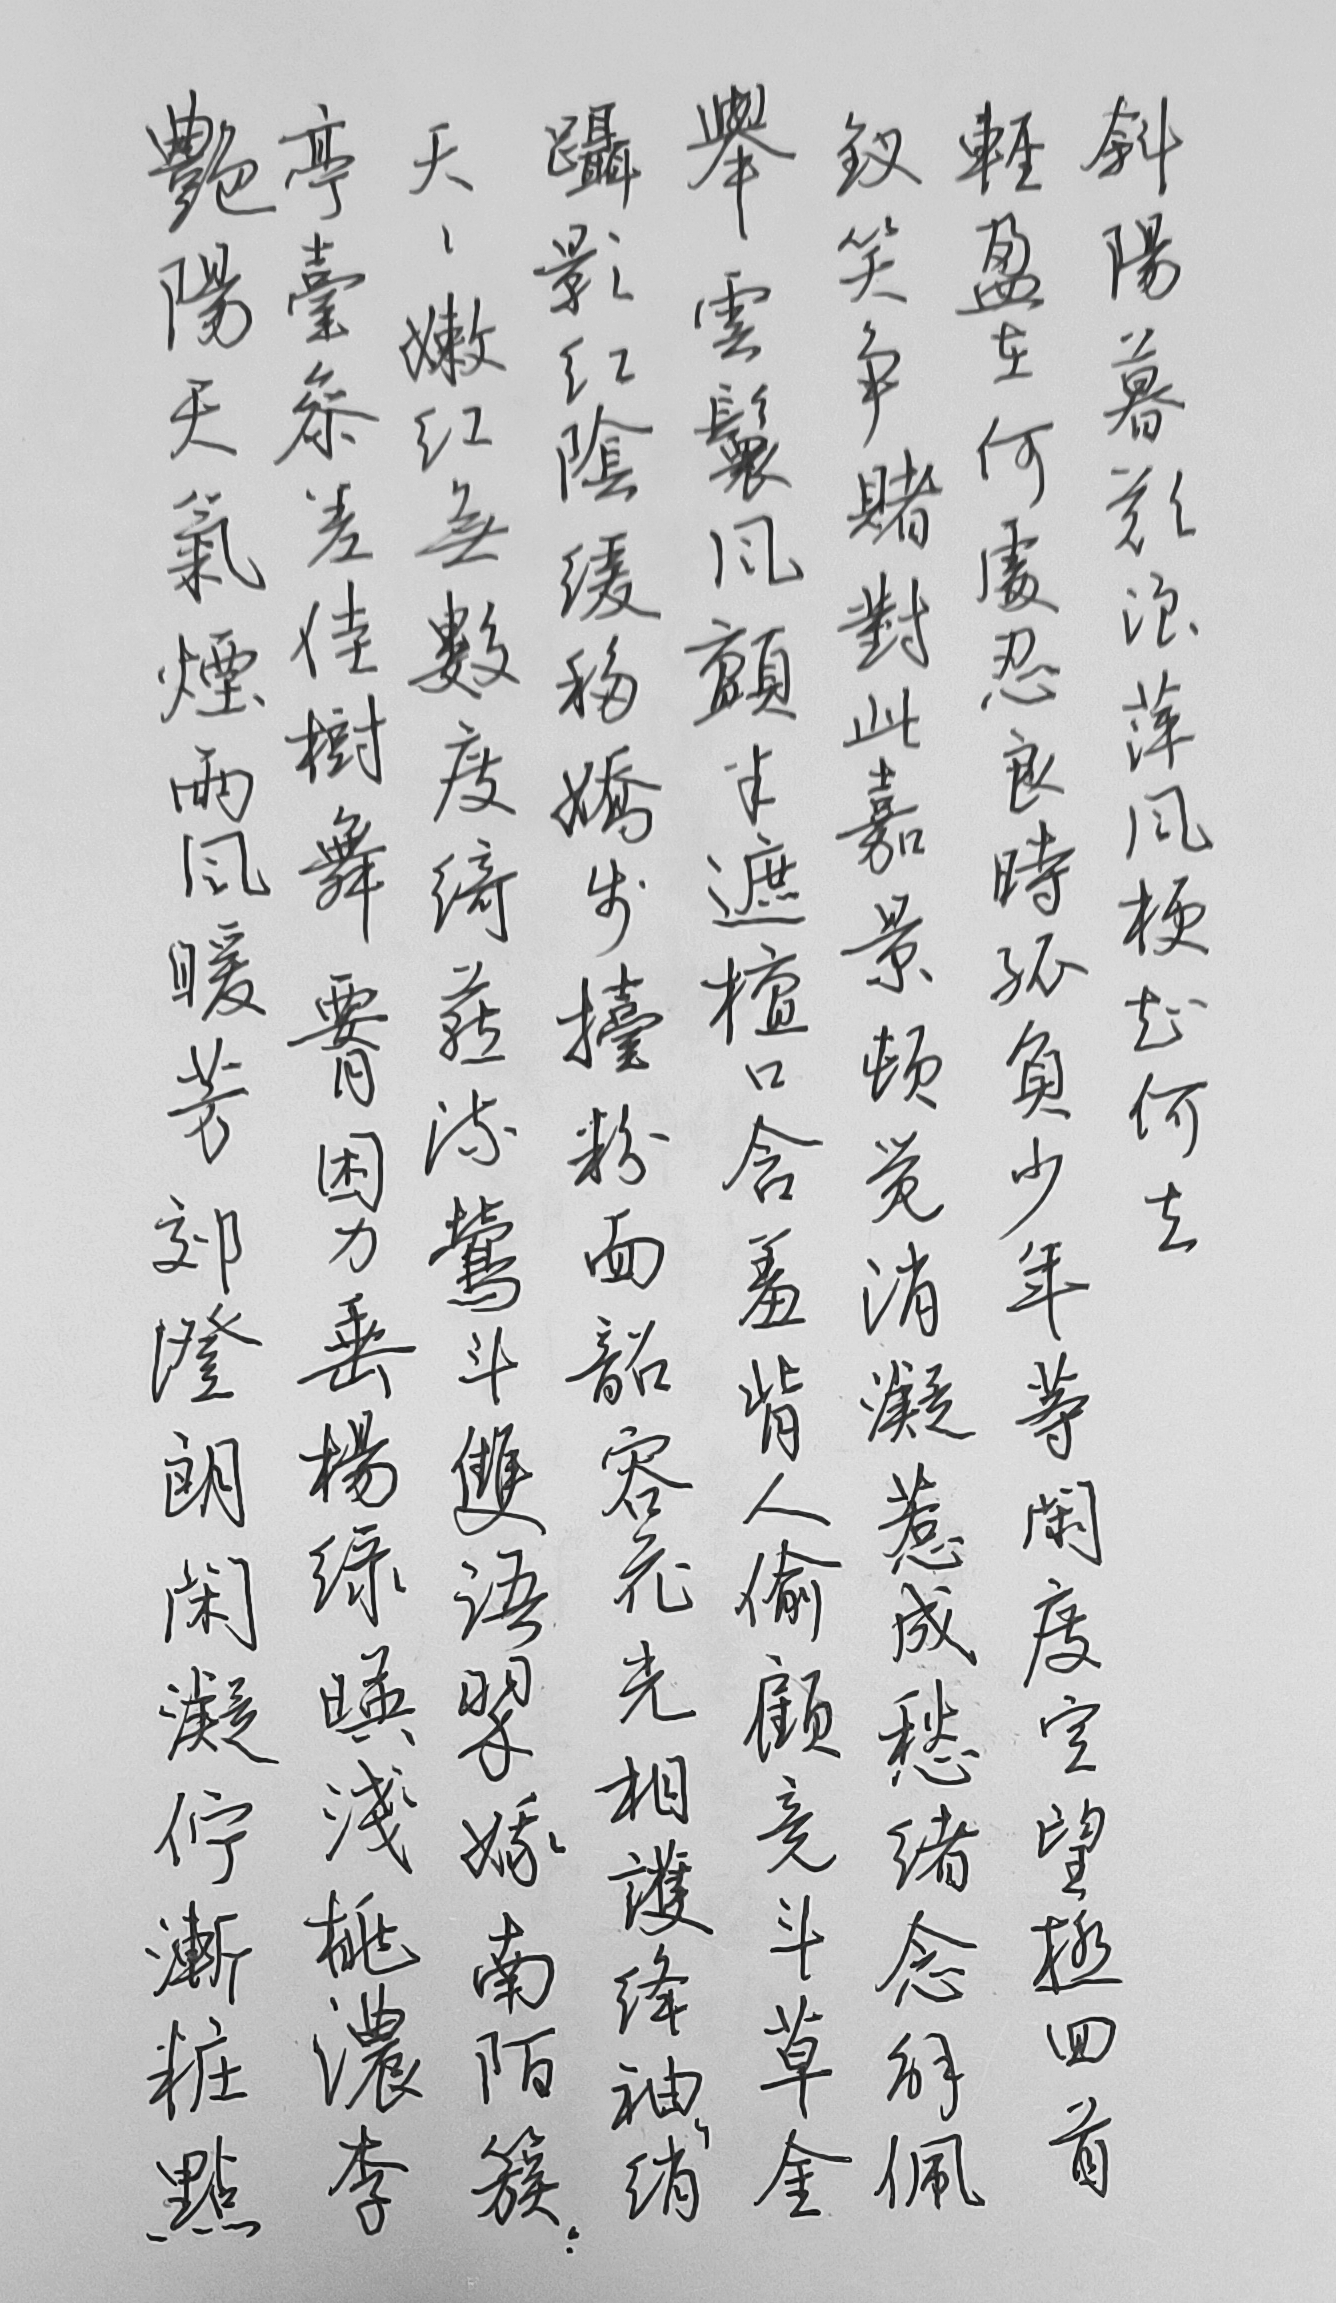 艷陽天氣煙雨风暖芳郊澄朗閑凝佇漸粧點
亭臺叅差佳樹舞腰困力垂楊绿暎淺桃濃李
夭、嫩红無數度绮燕流鶯斗雙语翠娥南陌簇:
躡影红陰缓移嬌步擡粉面韶容花光相護绛袖绡
舉雲鬟风顫半遮檀口含羞背人偷顧竞斗草金
釵笑争賭對此嘉景顿觉消凝惹成愁绪念解佩
輕盈在何處忍良時孤負少年等閑度空望極回首
斜陽暮歎浪萍风梗知何去